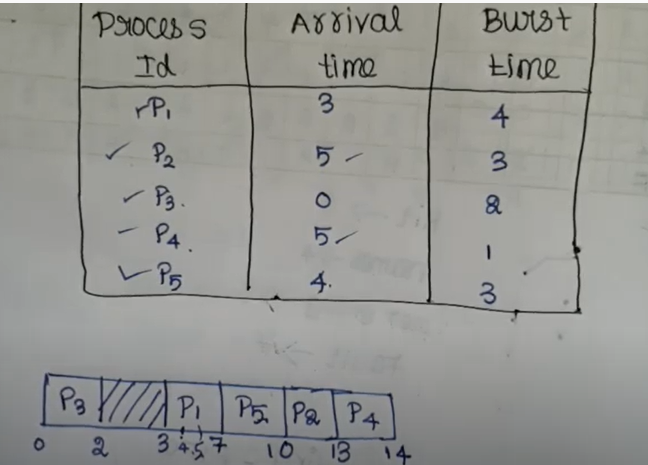 Process Arrival Burst
Id time time
P1 3 4
P2 5 3
P3. 0 2
P4. 5 1
P5 4. 3
P3 P1 P5 P2 P4
0 2 3 4 5 7 10 13 14